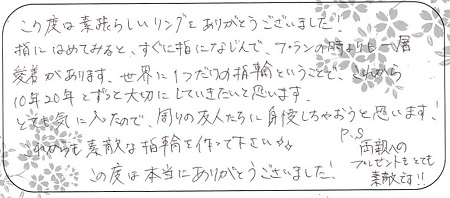 この度は素晴らしいリングをありがとうございました!
指にはめてみると、すぐに指になじんで、プランの時よりも一層
愛着があります。世界に1つだけの指輪ということで、これから
10年20年とずっと大切にしていきたいと思います。
とても気に入たので、周りの友人たちに自慢しちゃおうと思います!
これからも素敵な指輪を作って下さいね。
この度は本当にありがとうございました!
P.S
両親への
プレゼントもとても
素敵です!!